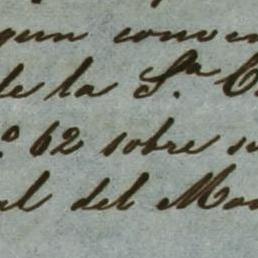 gun conven
de la S.ª C
.º 62 sobre su
al del Mon